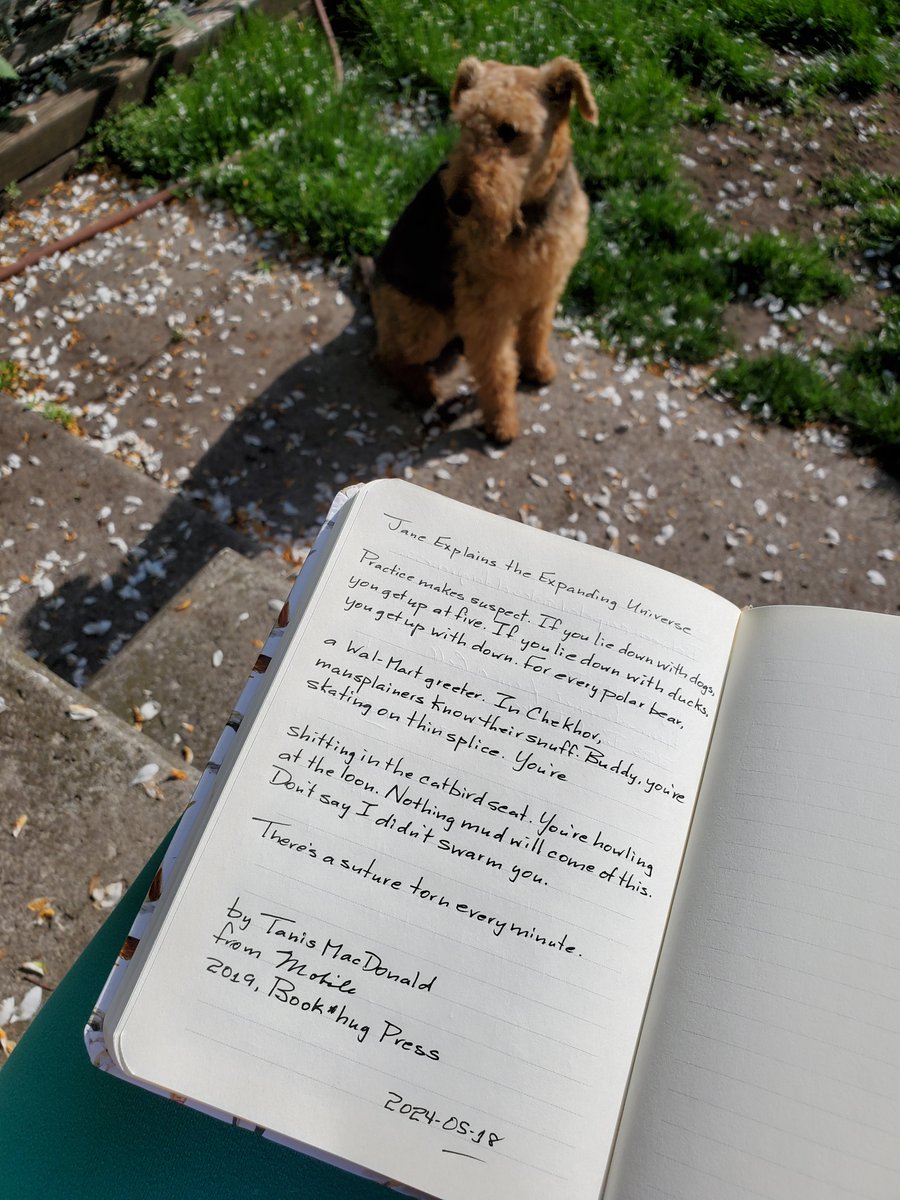 Jane Explains the Expanding Universe
Practice makes suspect. If you lie down with dogs,
you get up at five. If you lie down with ducks,
you get up with down. For every polar bear,
a Wal-Mart greeter. In Chekhov,
mansplainers know their snuff. Buddy, you're
skating on thin splice. You're
shitting in the catbird seat. You're howling
at the loon. Nothing mud will come of this.
Don't say I didn't swarm you.
There's a suture torn every minute.
by Tanis MacDonald
from Mobile
2019, Book*hug Press
2024-05-18